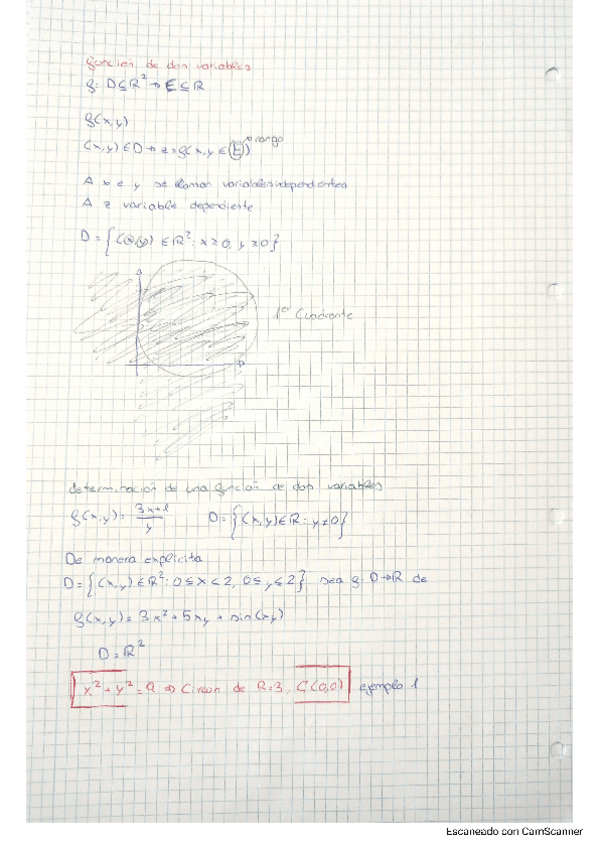 función de dos variables
f: D⊆R² → E⊆R
f(x,y)
(x,y)∈D → z=f(x,y ∈ (E)) → rango
A x e y se llaman variables independientes
A z variable dependiente
D = {(x,y) ∈ R²: x≥0, y≥0}
1er Cuadrante
determinación de una función de dos variables
f(x,y) = 3x+1/y D = {(x,y)∈R: y≠0}
De manera explícita
D = {(x,y)∈R²: 0≤x<2, 0≤y≤2} sea f: D→R de
f(x,y) = 3x² + 5xy + sin(xy)
D = R²
x² + y² = 9 ⇒ Circun de R=3, C(0,0) ejemplo 1
Escaneado con CamScanner